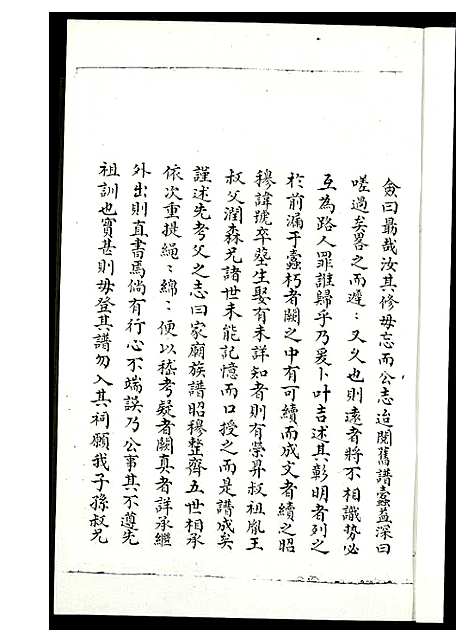 僉曰勗哉汝其修毋忘而公志迨閱舊譜蠹益深曰
嗟過矣畧之而遲〻又久也則遠者將不相識勢必
互為路人罪誰歸乎乃爰卜叶吉述其彰明者列之
於前漏于蠹朽者闕之中有可續而成文者續之昭
穆諱號卒塟生娶有未詳知者則有榮昇叔祖胤王
叔父潤森兄諸世未能記憶而口授之而是譜成矣
謹述先考父之志曰家廟族譜昭穆整齊五世相承
依次重提繩〻綿〻便以稽考疑者闕真者詳承繼
外出則直書焉倘有行心不端誤乃公事其不遵先
祖訓也實甚則毋登其譜勿入其祠願我子孫叔兄